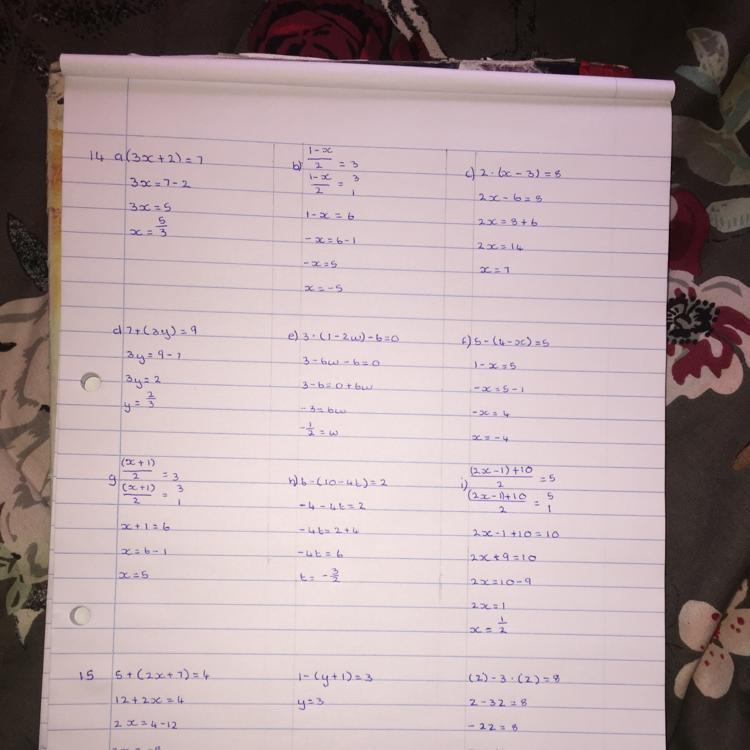 14 a(3x+2)=7
3x=7-2
3x=5
x=5/3
b) (1-x)/2 = 3
(1-x)/2 = 3/1
1-x=6
-x=6-1
-x=5
x=-5
c) 2·(x-3)=8
2x-6=8
2x=8+6
2x=14
x=7
d) 7+(3y)=9
3y=9-7
3y=2
y=2/3
e) 3·(1-2w)-6=0
3-6w-6=0
3-6=0+6w
-3=6w
-1/2=w
f) 5-(4-x)=5
1-x=5
-x=5-1
-x=4
x=-4
g (x+1)/2 = 3
(x+1)/2 = 3/1
x+1=6
x=6-1
x=5
h) 6-(10-4t)=2
-4-4t=2
-4t=2+4
-4t=6
t=-3/2
i) ((2x-1)+10)/2 = 5
((2x-1)+10)/2 = 5/1
2x-1+10=10
2x+9=10
2x=10-9
2x=1
x=1/2
15 5+(2x+7)=4
12+2x=4
2x=4-12
1-(y+1)=3
y=3
(2)-3·(2)=8
2-32=8
-22=8